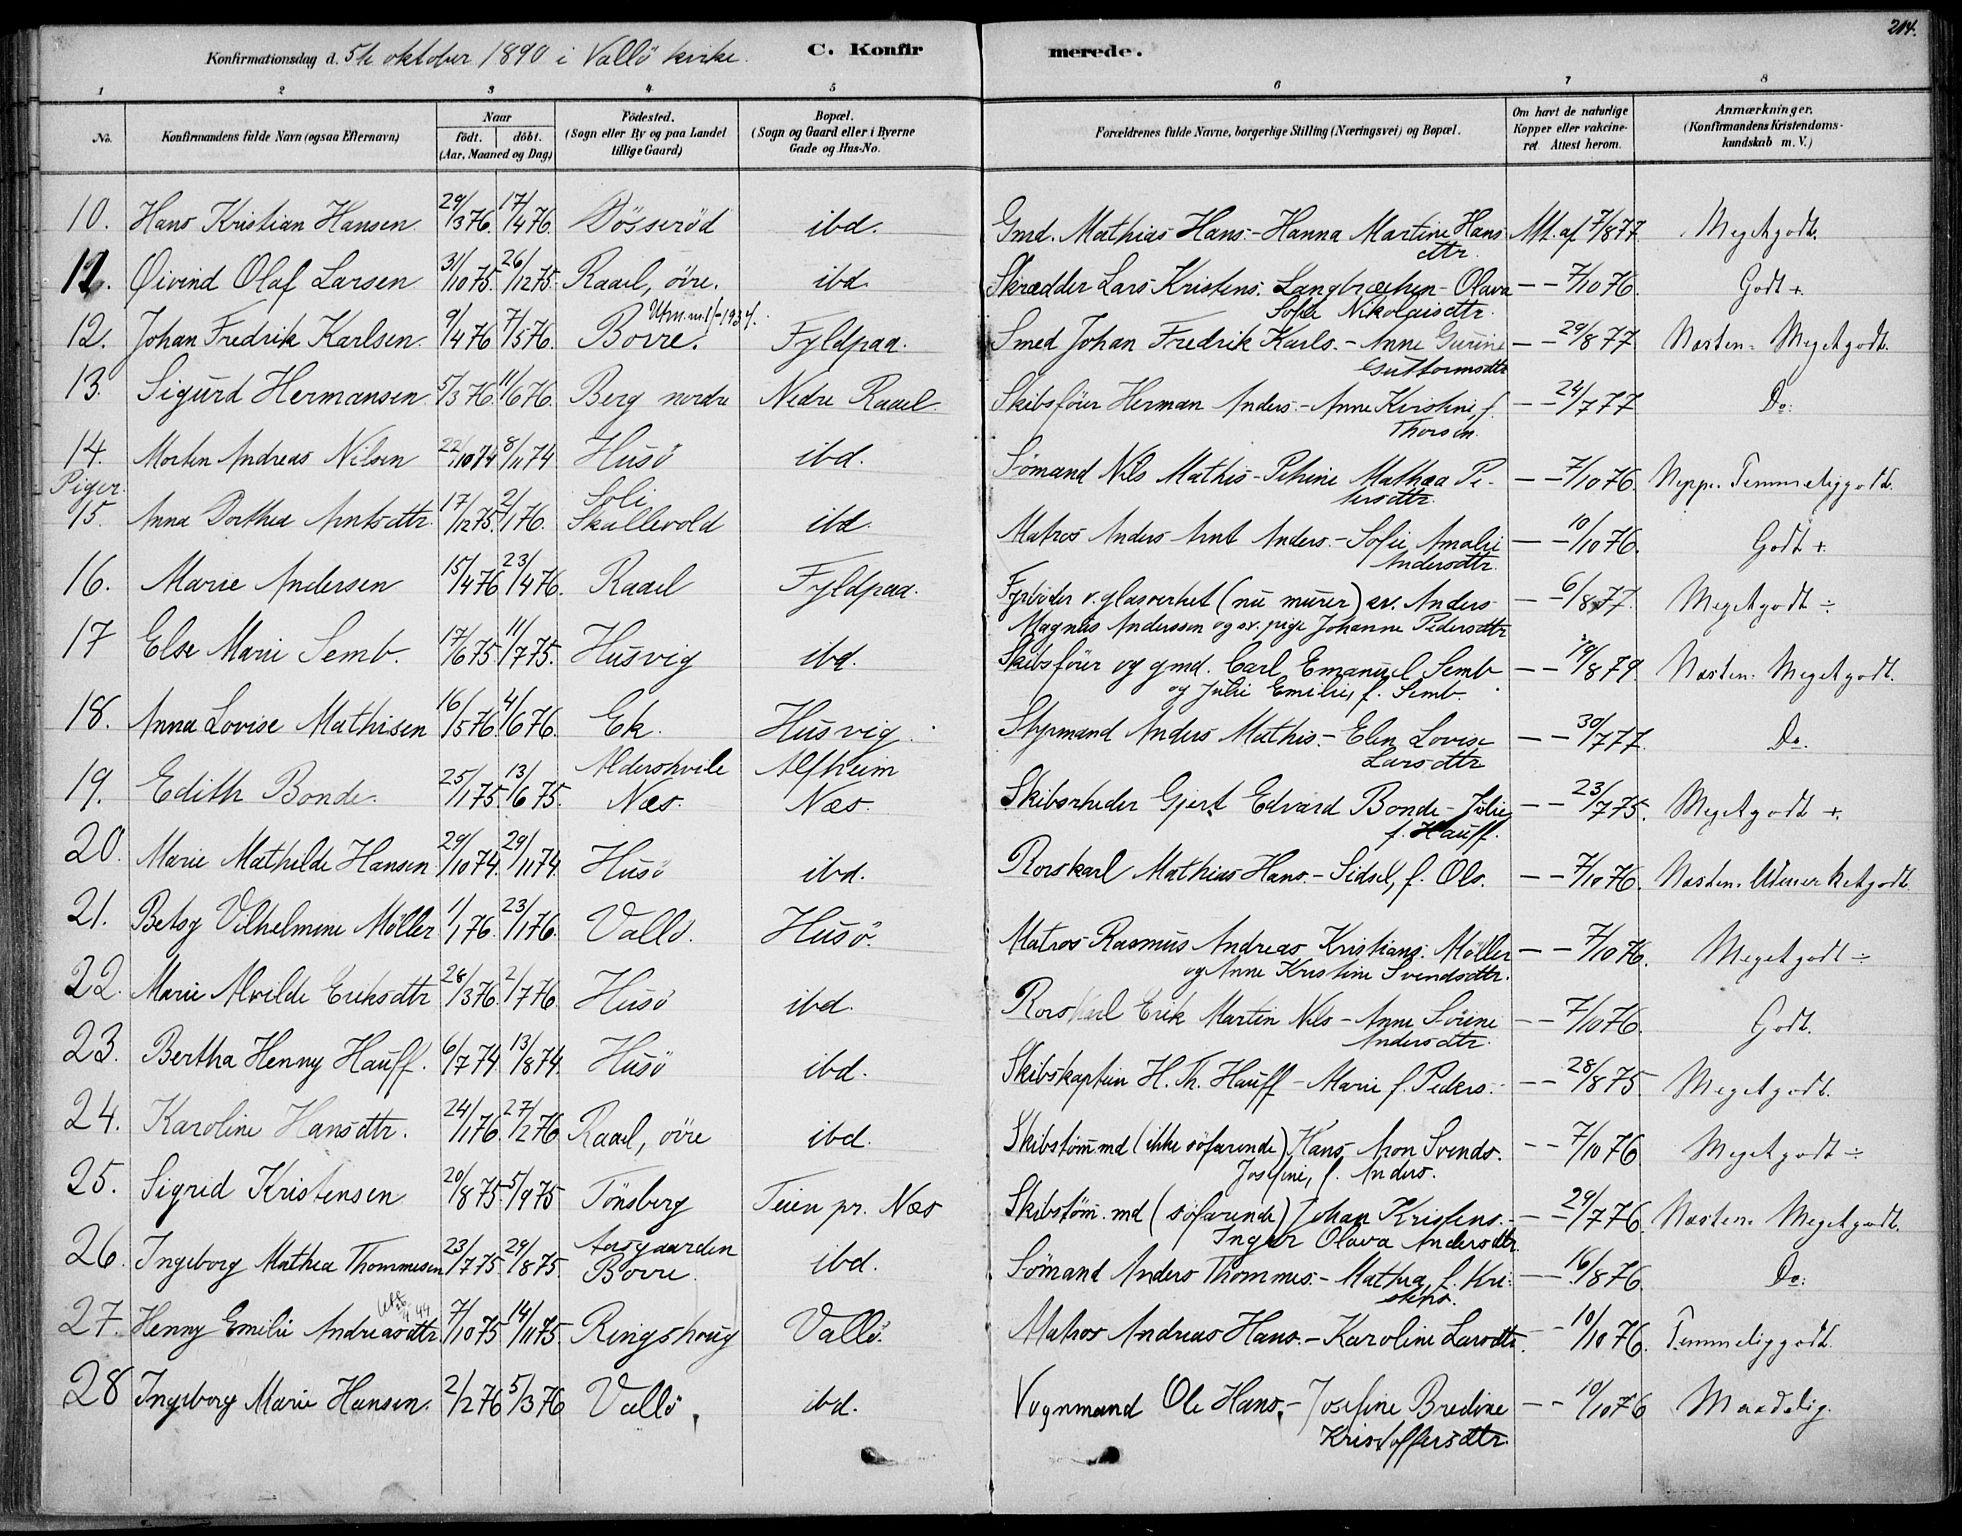 214.
Konfirmationsdag d. 5te oktober 1890 i Vallö kirke. C. Konfirmerede.
1 2 3 4 5 6 7 8
No. Konfirmandens fulde Navn (ogsaa Efternavn) Naar født. døbt. (Aar, Maaned og Dag) Fødested. (Sogn eller By og paa Landet tillige Gaard) Bopæl. (Sogn og Gaard eller i Byerne Gade og Hus-No. Forældrenes fulde Navne, borgerlige Stilling (Næringsvei) og Bopæl. Om havt de naturlige Kopper eller vakcineret. Attest herom. Anmærkninger. (Konfirmandens Kristendomskundskab m. V.)
10. Hans Kristian Hansen 29/3 76. 17/4 76. Dösseröd ibd. Gmd. Mathias Hans.- Hanna Martine Hans Att. af 7/8 77 Megetgodt.
dtr.
11. Øivind Olaf Larsen 31/10 75. 26/12 75. Raael, övre. ibd. Skrædder Lars Kristens. Langbrækken - Olava — — 7/10 76. Godt +
Sofie Nikolaisdtr.
12. Johan Fredrik Karlsen. 9/4 76 7/5 76. Bovre. Fyldpaa. Smed Johan Fredrik Karls. - Anne Gurine — — 29/8 77 Næsten Megetgodt.
Guttormsdtr
13. Sigurd Hermansen 5/3 76. 11/6 76. Berg nordre Nedre Raael. Skibsförer Herman Anders.- Anne Kirstine, f. — — 24/7 77 Do.
Thorsen.
14. Morten Andreas Nilsen 22/10 74 8/11 74 Husö ibd. Sömand Nils Mathis - Petrine Mathea Pe- — — 7/10 76. Neppe Temmeliggodt.
tersdtr.
Piger.
Soli
15. Anna Dorthea Arntsdtr. 17/12 75. 2/1 76. Skallevold ibd. Matros Anders Arnt Anders.- Sofie Amalie — — 10/10 76. Godt +.
Andersdtr.
16. Marie Andersen 15/4 76 23/4 76. Raael Fyldpaa. Fyrböder v. glasverket (nu murer) sv. Anders — — 6/8 77. Megetgodt ÷
Magnus Anderssen og sv. pige Johanne Pedersdtr
17 Else Marie Semb. 17/6 75 11/7 75. Husvig ibd. Skibsförer og gmd. Carl Emanuel Semb — — /8 79 Næsten Megetgodt.
og Julie Emilie, f. Semb.
18. Anna Lovise Mathisen 16/5 76 4/6 76. Ek. Husvig Styrmand Anders Mathis.- Elen Lovise — — 30/7 77. Do.
Larsdtr
Aldershvile Alfheim
19. Edith Bonde. 25/1 75 13/6 75. Næs. Næs. Skibsrheder Gjert Edvard Bonde - Julie — — 23/7 75. Megetgodt +.
f. Hauff.
20. Marie Mathilde Hansen 29/10 74. 29/11 74. Husö ibd. Rorskarl Mathias Hans.- Sidsel, f. Ols. — — 7/10 76. Næsten Udmerketgodt
21. Betsy Vilhelmine Möller 1/1 76. 23/1 76. Vallö. Husö. Matros Rasmus Andreas Kristians. Möller — — 7/10 76. Megetgodt ÷
og Anne Kristine Svendsdtr.
22. Marie Alvilde Eriksdtr 28/3 76. 2/7 76. Husö ibd. Rorskarl Erik Martin Nils - Anne Sörine — — 7/10 76. Godt.
Andersdtr.
23. Bertha Henny Hauff. 6/7 74 13/8 74 Husö ibd. Skibskaptein H. Th. Hauff - Marie f. Peders. — — 28/8 75 Megetgodt.
24. Karoline Hansdtr. 24/1 76. 27/2 76 Raael, övre ibd. Skibstömmd (ikke söfarende) Hans Aron Svends. — — 7/10 76 Megetgodt ÷
Josefine, f. Anders.
25. Sigrid Kristensen 20/8 75. 5/9 75 Tönsberg Teien pr. Næs Skibstöm. md (söfarende) Johan Kristens. — — 29/7 76. Næsten Megetgodt.
Inger Olava Andersdtr.
Aasgaarden
26. Ingeborg Mathea Thommesen 23/7 75. 29/8 75 Bovre. ibd. Sömand Anders Thommes.- Mathea, f. Kri- — — 16/8 76. Do.
stens.
27. Henny Emilie Andreasdtr 7/10 75 14/11 75. Ringshoug Vallö. Matros Andreas Hans.- Karoline Larsdtr. — 10/10 76. Temmeliggodt.
28 Ingeborg Marie Hansen. 2/2 76 5/3 76 Vallö ibd. Vognmand Ole Hans.- Josefine Bredine — — 10/10 76 Maadelig.
Kristoffersdtr.